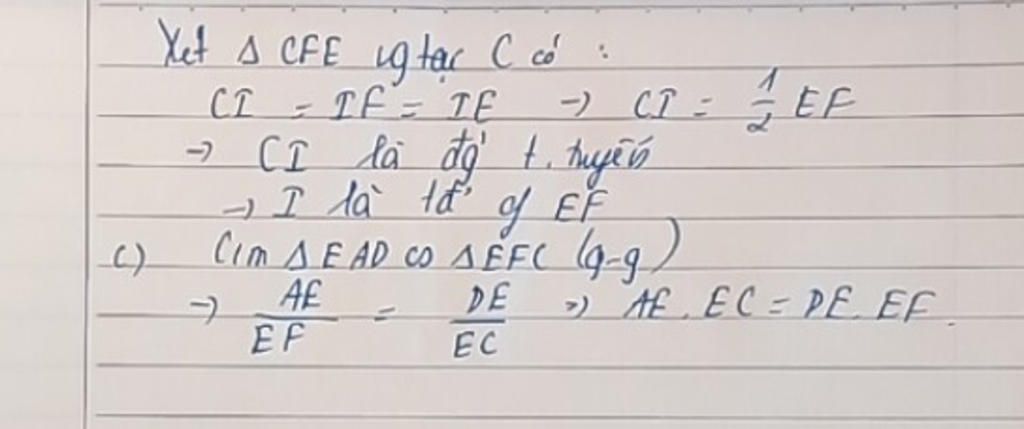 Xét Δ CFE vg tại C có :
CI = IF = IE → CI = 1/2 EF
→ CI là đg` t. tuyến
→ I là tđ' of EF
c) C/m Δ EAD ∽ Δ EFC (g-g)
→ AE/EF = DE/EC => AE . EC = DE . EF .